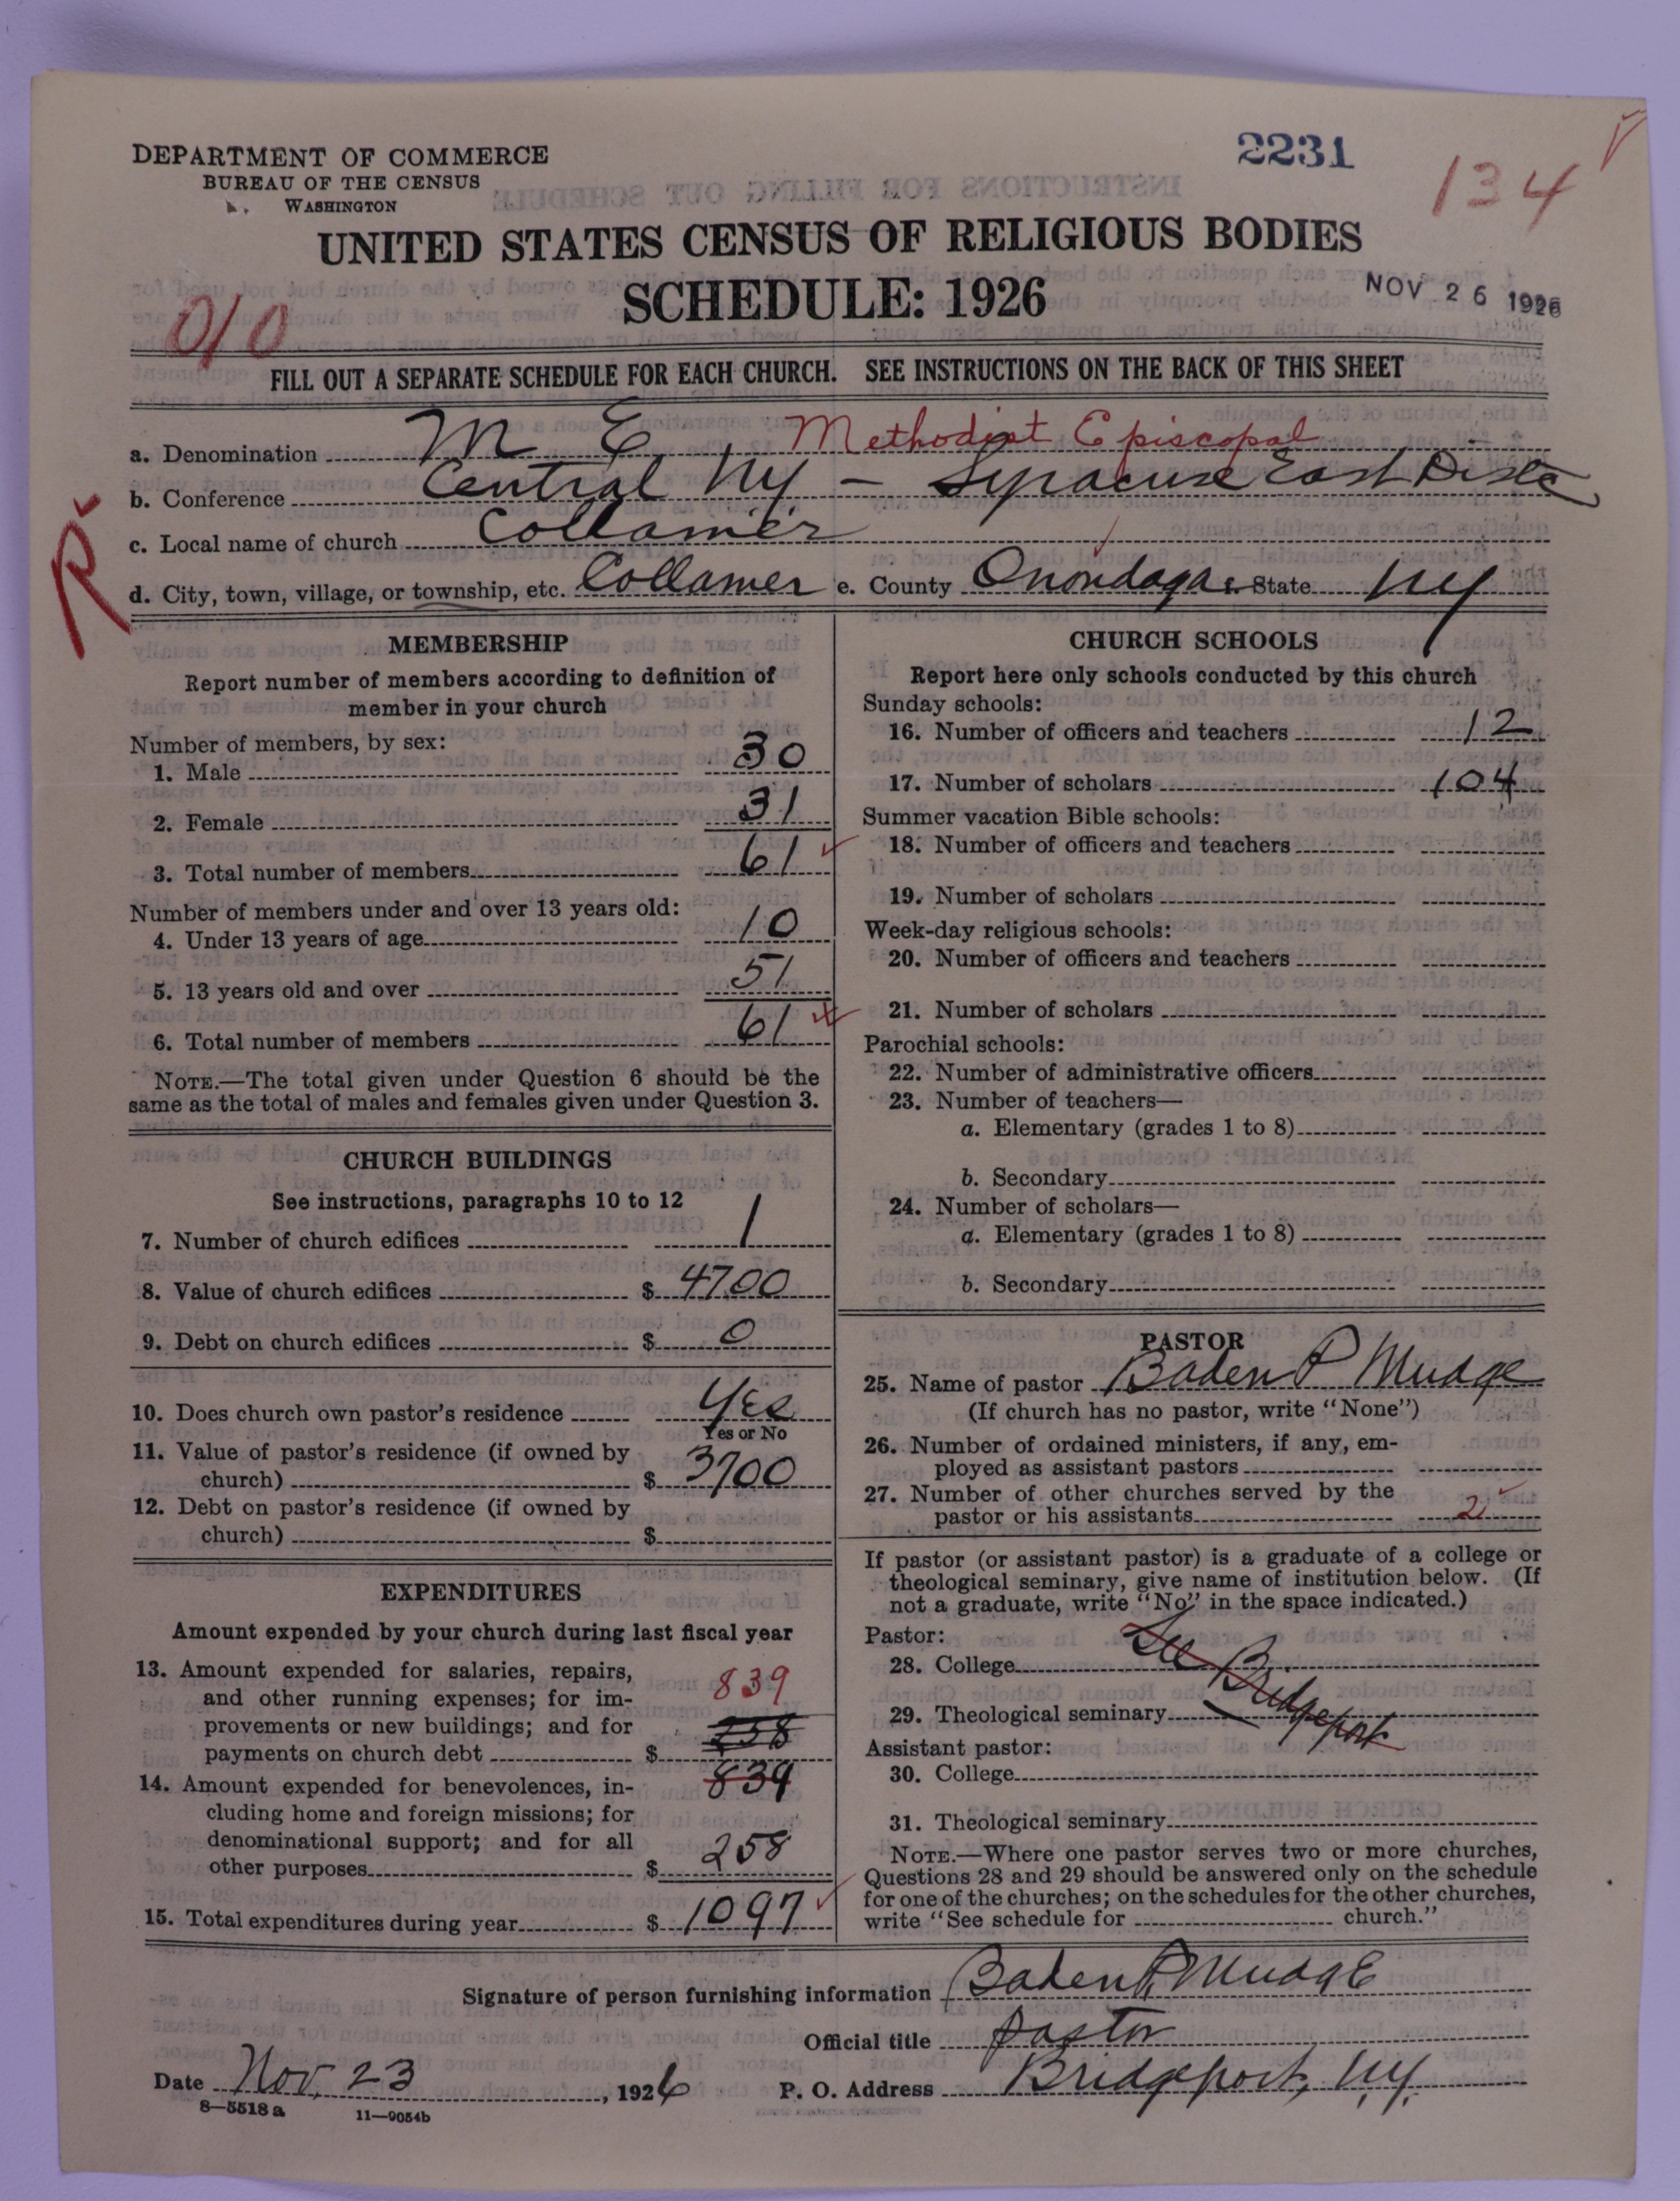 2231
134
DEPARTMENT OF COMMERCE
BUREAU OF THE CENSUS
WASHINGTON
UNITED STATES CENSUS OF RELIGIOUS BODIES
SCHEDULE: 1926
NOV 26 1926
010
FILL OUT A SEPARATE SCHEDULE FOR EACH CHURCH. SEE INSTRUCTIONS ON THE BACK OF THIS SHEET
a. Denomination M E Methodist Episcopal
b. Conference Central NY - Syracuse East Dist
c. Local name of church Collamer
d. City, town, village, or township, etc. Collamer e. County Onondaga State NY
R
MEMBERSHIP
Report number of members according to definition of
member in your church
Number of members, by sex:
1. Male 30
2. Female 31
3. Total number of members 61
Number of members under and over 13 years old:
4. Under 13 years of age 10
5. 13 years old and over 51
6. Total number of members 61
NOTE.—The total given under Question 6 should be the
same as the total of males and females given under Question 3.
CHURCH BUILDINGS
See instructions, paragraphs 10 to 12
7. Number of church edifices 1
8. Value of church edifices $ 4700
9. Debt on church edifices $ 0
10. Does church own pastor's residence Yes
Yes or No
11. Value of pastor's residence (if owned by
church) $ 3700
12. Debt on pastor's residence (if owned by
church) $
EXPENDITURES
Amount expended by your church during last fiscal year
13. Amount expended for salaries, repairs,
and other running expenses; for im- 839
provements or new buildings; and for 258
payments on church debt $
14. Amount expended for benevolences, in- 839
cluding home and foreign missions; for
denominational support; and for all
other purposes $ 258
15. Total expenditures during year $ 1097
CHURCH SCHOOLS
Report here only schools conducted by this church
Sunday schools:
16. Number of officers and teachers 12
17. Number of scholars 104
Summer vacation Bible schools:
18. Number of officers and teachers
19. Number of scholars
Week-day religious schools:
20. Number of officers and teachers
21. Number of scholars
Parochial schools:
22. Number of administrative officers
23. Number of teachers—
a. Elementary (grades 1 to 8)
b. Secondary
24. Number of scholars—
a. Elementary (grades 1 to 8)
b. Secondary
PASTOR
25. Name of pastor Baden P Mudge
(If church has no pastor, write "None")
26. Number of ordained ministers, if any, em-
ployed as assistant pastors
27. Number of other churches served by the
pastor or his assistants 2
If pastor (or assistant pastor) is a graduate of a college or
theological seminary, give name of institution below. (If
not a graduate, write "No" in the space indicated.)
Pastor:
28. College See Bridgeport
29. Theological seminary
Assistant pastor:
30. College
31. Theological seminary
NOTE.—Where one pastor serves two or more churches,
Questions 28 and 29 should be answered only on the schedule
for one of the churches; on the schedules for the other churches,
write "See schedule for church."
Signature of person furnishing information Baden P. Mudge
Official title pastor
Date Nov. 23, 1926 P. O. Address Bridgeport, N.Y.
8—5518a 11—9054b